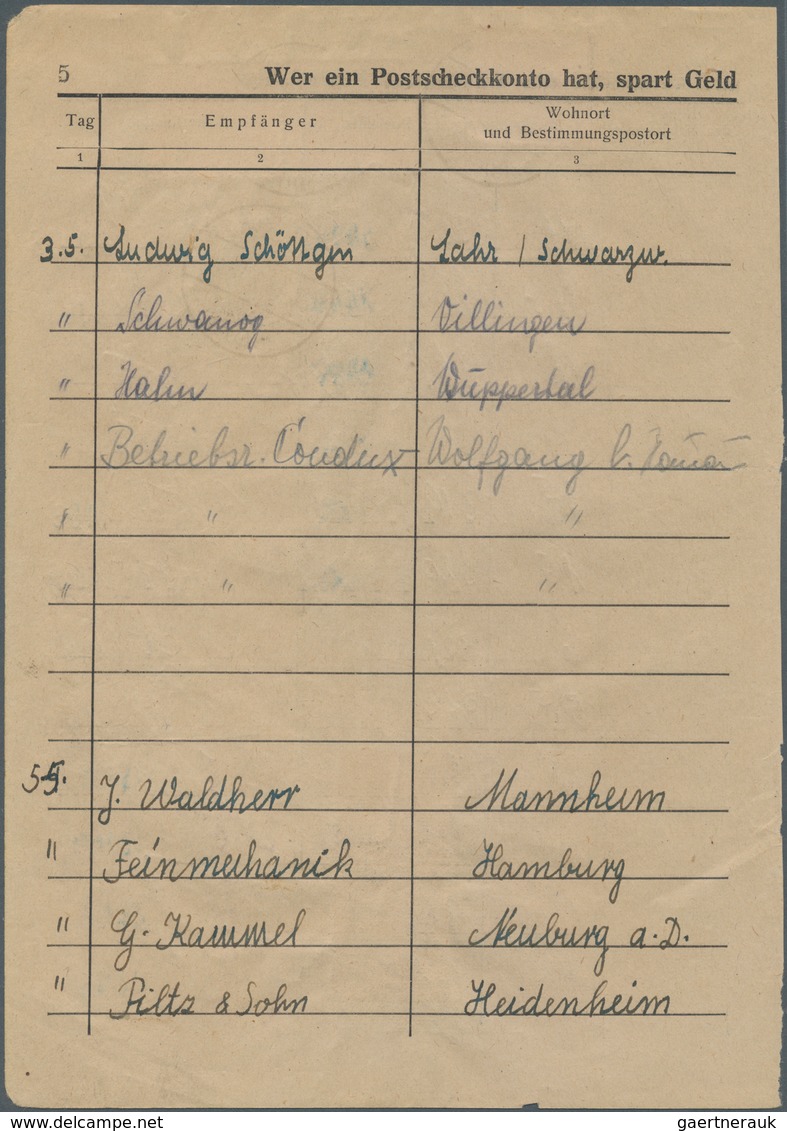 5 Wer ein Postscheckkonto hat, spart Geld
Tag Empfänger Wohnort
und Bestimmungspostort
1 2 3
3.5. Ludwig Schöttgen Lahr / Schwarzw.
" Schwanog Villingen
" Hahn Wuppertal
" Betriebsr. Condux Wolfgang b. Hanau
" " "
" " "
5.5. J. Waldherr Mannheim
" Feinmechanik Hamburg
" G. Kammel Neuburg a.D.
" Piltz & Sohn Heidenheim
www.delcampe.net gaertnerauk